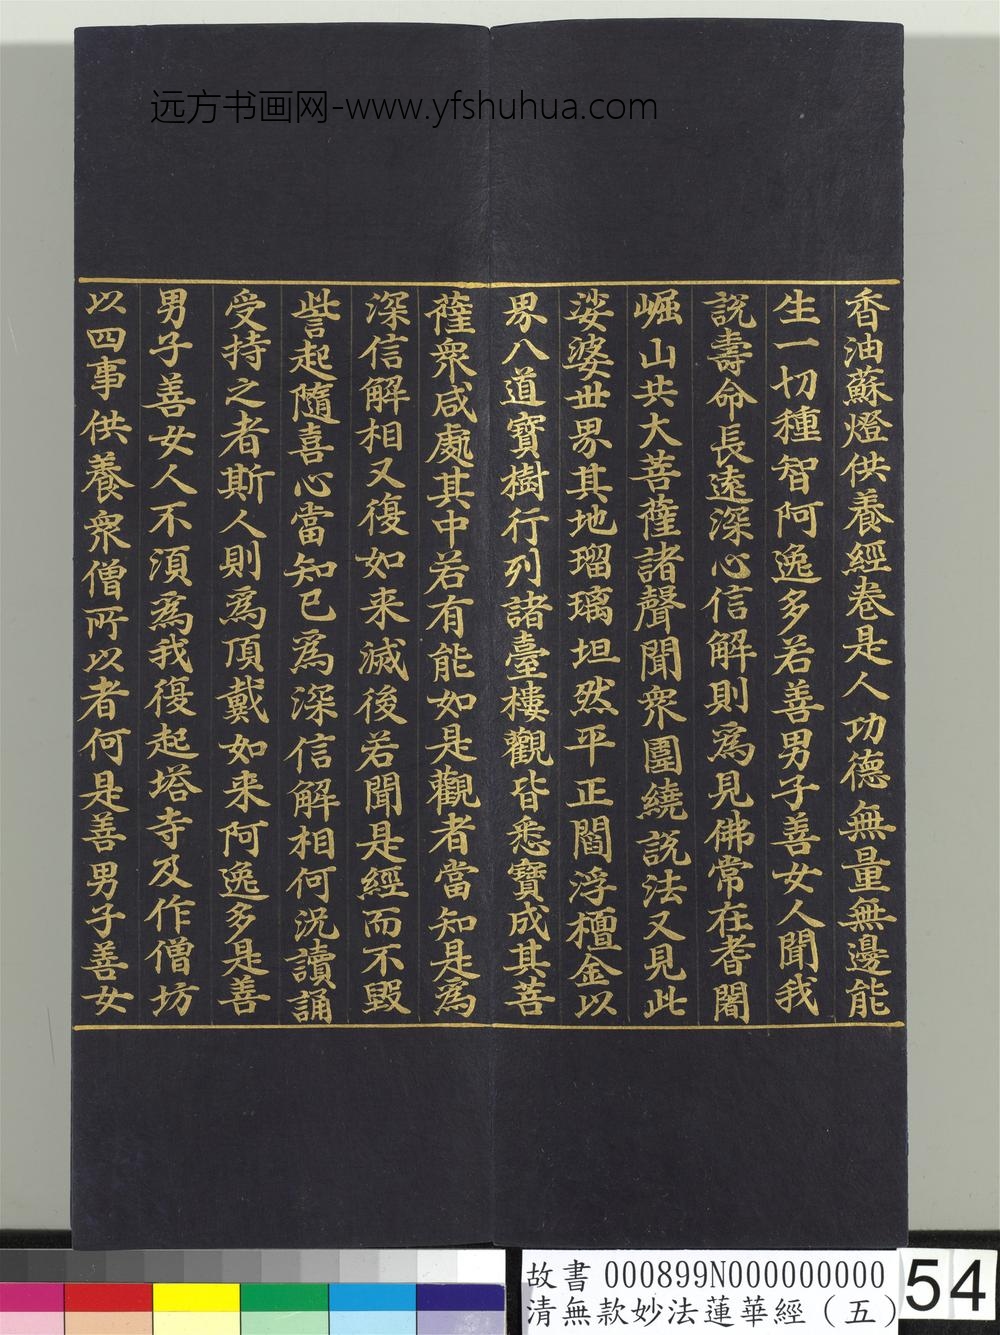 远方书画网-www.yfshuhua.com
香油蘇燈供養經卷是人功德無量無邊能
生一切種智阿逸多若善男子善女人聞我
說壽命長遠深心信解則爲見佛常在耆闍
崛山共大菩薩諸聲聞衆圍繞說法又見此
娑婆世界其地瑠璃坦然平正閻浮檀金以
界八道寶樹行列諸臺樓觀皆悉寶成其菩
薩衆咸處其中若有能如是觀者當知是爲
深信解相又復如来滅後若聞是經而不毀
訾起隨喜心當知已爲深信解相何況讀誦
受持之者斯人則爲頂戴如来阿逸多是善
男子善女人不須爲我復起塔寺及作僧坊
以四事供養衆僧所以者何是善男子善女
故書 000899N000000000
清無款妙法蓮華經（五）
54